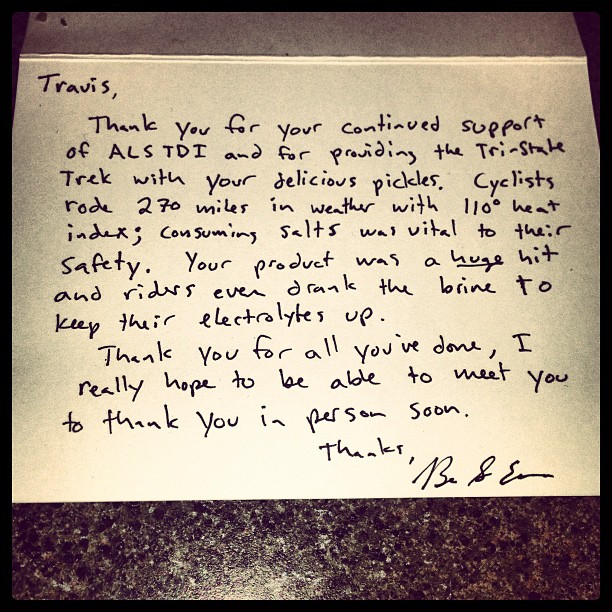 Travis,
Thank you for your continued support
of ALS TDI and for providing the Tri-State
Trek with your delicious pickles. Cyclists
rode 270 miles in weather with 110° heat
index; consuming salts was vital to their
safety. Your product was a huge hit
and riders even drank the brine to
keep their electrolytes up.
Thank you for all you've done, I
really hope to be able to meet you
to thank you in person soon.
Thanks,